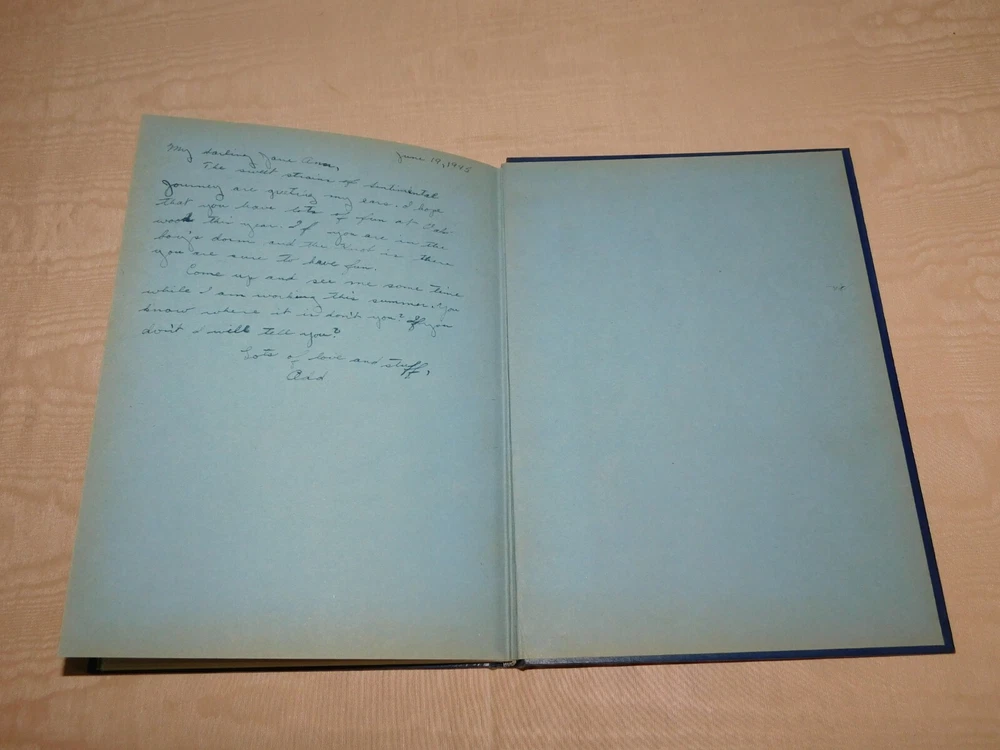 June 19, 1945
My darling Jane Ann,
The sweet strains of Sentimental
Journey are greeting my ears. I hope
that you have lots of fun at Oak-
wood this year. If you are in the
boy's dorm and the is there
you are sure to have fun.
Come up and see me some time
while I am working this summer. You
know where it is don't you? If you
don't I will tell you?
Lots of love and stuff,